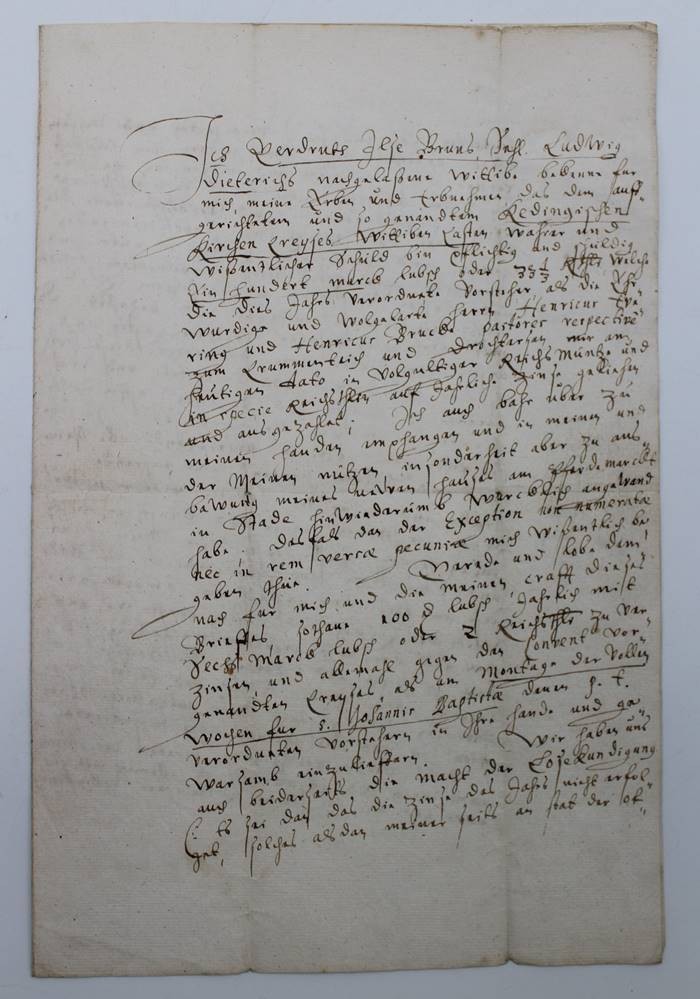 Ich Gerdruth Ilse Bruns, Sehl. Ludwig
Dieterichs nachgelaßene Witibe bekenne für
mich, meine Erben und Erbnehmen das dem auff-
gerichtetem und so genandtem Kedingischen
Kirchen Creyses Witiben Casten wahrer und
wißentlicher Schuld bin pflichtig und schüldig
Ein hundert marck lübsch oder 33 1/3 Rthlr welche
die dies Jahrs verordnete Vorsteher als die Ehr
würdige und wolgelarte Herrn Henricus
und Henricus Brucke pastores respective
zum Crummenteich und Drochtersen mir am
heutigen dato in vollgültiger Reichs Müntze und
in specie Reichsthlrn auf Jahrliche Zinse geliehen
und ausgezahlet; Ich auch bahr über zu
meinen handen empfangen und in meinen und
der Meinen nützen insonderheit aber zu aus-
bawung meines newen hauses am Pferdemarckt
in Stade hinwiederumb würcklich angewand
habe, desfals dan der Exception non numeratæ
nec in rem versæ pecuniæ mich wißentlich be
geben thue. Gerede und lobe dem-
nach für mich und die meinen, crafft dieses
Brieffes sothane 100 lübsch, Jahrlich mit
Sechs Marck lübsch oder 2 Reichsthlr zu ver-
zinsen und allemahl gegen den Convent vor-
genandten Creyses, als am Montage der Vollen
Wochen für S. Johannis Baptistæ denen p. t.
verordneten Vorstehern in Ihre hande und ge-
warsamb einzulieffern. Wir haben uns
auch beiderseits die Macht der Losekündigung
es sei dan das die Zinse des Jahrs nicht erfol-
get, solches alsdan meiner seits an stat der